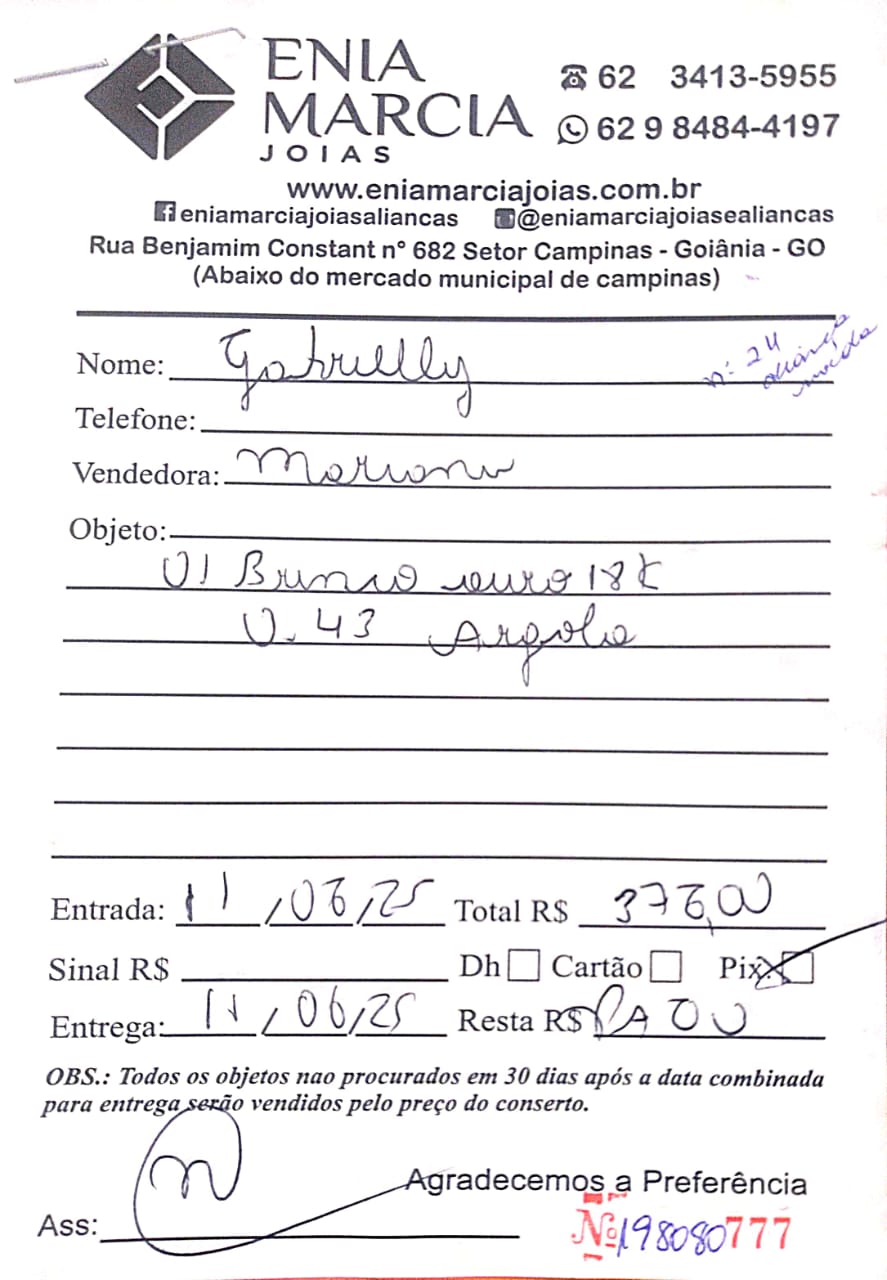 ENIA
MARCIA
JOIAS
62 3413-5955
62 9 8484-4197
www.eniamarciajoias.com.br
eniamarciajoiasaliancas @eniamarciajoiasealiancas
Rua Benjamim Constant nº 682 Setor Campinas - Goiânia - GO
(Abaixo do mercado municipal de campinas)
nº 24
aliança
Nome: Gabrielly
Telefone:
Vendedora: Mariana
Objeto:
01 Brinco ouro 18k
0.43 Argola
Entrada: 11/06/25 Total R$ 376,00
Sinal R$ Dh Cartão Pix
Entrega: 11/06/25 Resta R$ PAGO
OBS.: Todos os objetos nao procurados em 30 dias após a data combinada
para entrega serão vendidos pelo preço do conserto.
Agradecemos a Preferência
Ass:
Nº 198080777